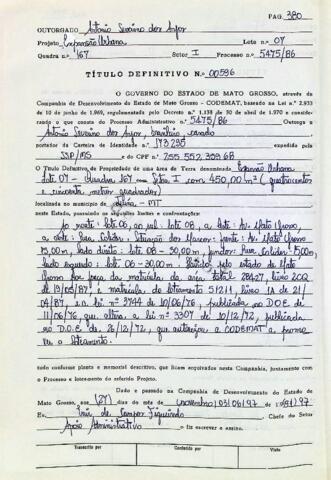 PAG. 380
OUTORGADO Antônio Severino dos Anjos
Projeto Expansão Urbana Lote n.o 07
Quadra n.o 167 Setor I Processo n.o 5475/86
TÍTULO DEFINITIVO N.o 00596
O GOVERNO DO ESTADO DE MATO GROSSO, através da
Companhia de Desenvolvimento do Estado de Mato Grosso - CODEMAT, baseado na Lei N.o 2.933
de 10 de junho de 1969, regulamentada pelo Decreto n.o 1.138 de 30 de abril de 1970 e conside-
rando o que consta do Processo Administrativo n.o 5475/86 Outorga a
Antônio Severino dos Anjos, brasileiro casado
portador da Carteira de Identidade n.o 143295 expedida pela
SSP/MS e do CPF n.o 755 552 309 68
O Título Definitivo de Propriedade de uma área de Terra denominada Expansão Urbana
lote 07 - Quadra 167 - Setor I com 450,00 m² (quatrocentos
e cinquenta metros quadrados)
localizada no município de - MT
neste Estado, possuindo os seguintes limites e confrontações:
ao norte: lote 06, ao sul: lote 08, a leste: Av. Mato Grosso,
a oeste: Rua Colider. Situação dos Marcos: frente: Av. Mato Grosso
15,00 m, lado direito: lote 08 - 30,00 m, fundos: Rua Colider 15,00m,
lado esquerdo: lote 06 - 30,00 m. pelo estado de Mato
Grosso por força da matrícula da área total 28427, livro 2CQ
de 19/05/87, e matrícula do loteamento 51211, livro 21/
04/87, e a lei n° 3744 de 10/06/76, publicada no D.O.E. de
11/06/76, que altera a lei n° 3307 de 10/12/72, publicada
no D.O.E. de 26/12/72, que autoriza a CODEMAT a promo-
ver o loteamento.
tudo conforme planta e memorial descritivo, que ficam arquivados nesta Companhia, juntamente com
o Processo e loteamento do referido Projeto.
Dado e passado na Companhia de Desenvolvimento do Estado de
Mato Grosso, aos (27) dias do mês de novembro/03/06/97 de 1997
Eu, de Campos Figueiredo Chefe do Setor
Apoio Administrativo o fiz escrever e assino.
Transcrito por
Conferido por
Visto